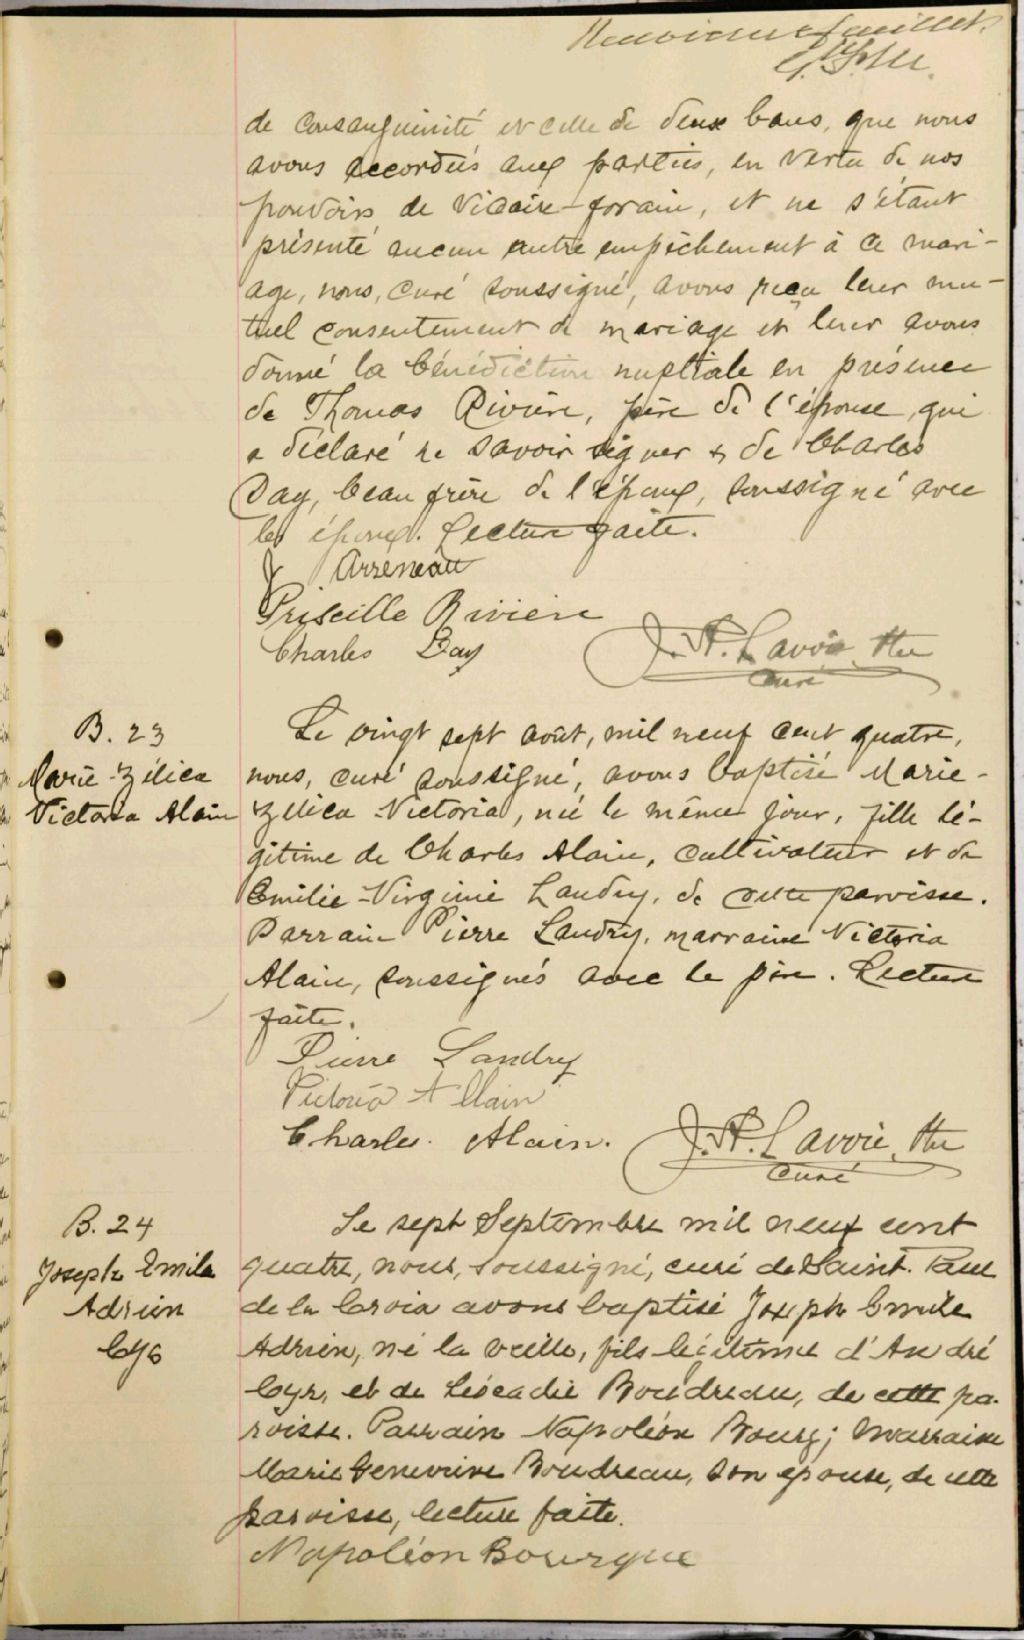 feuillet.
de consanguinité et celle de deux bans, que nous
avons accordés aux parties, en vertu de nos
pouvoirs de Vicaire-forain, et ne s'étant
présenté aucun autre empêchement à ce mari-
age, nous, curé soussigné, avons reçu leur mu-
tuel consentement de mariage et leur avons
donné la bénédiction nuptiale en présence
de Thomas Rivière, père de l'épouse, qui
a déclaré ne savoir signer & de Charles
Day, beau frère de l'époux, soussigné avec
les époux. Lecture faite.
J Arseneau
Priscille Riviere
Charles Day
J. A. Lavoie, Ptre
Curé
B. 23
Marie-Zélica
Victoria Alain
Le vingt sept août, mil neuf cent quatre,
nous, curé soussigné, avons baptisé Marie-
Zélica-Victoria, née le même jour, fille lé-
gitime de Charles Alain, cultivateur et de
Emilie-Virginie Landry, de cette paroisse.
Parrain Pierre Landry, marraine Victoria
Alain, soussignés avec le père. Lecture
faite.
Pierre Landry
Victoria Allain
Charles Alain.
J. A. Lavoie, Ptre
Curé
B. 24
Joseph Emile
Adrien
Cyr
Le sept Septembre mil neuf cent
quatre, nous, soussigné, curé de Saint-Paul
de la Croix avons baptisé Joseph Emile
Adrien, né la veille, fils légitime d'André
Cyr, et de Léocadie Boudreau, de cette pa-
roisse. Parrain Napoléon Bourg; marraine
Marie Geneviève Boudreau, son épouse, de cette
paroisse, lecture faite.
Napoléon Bourgue